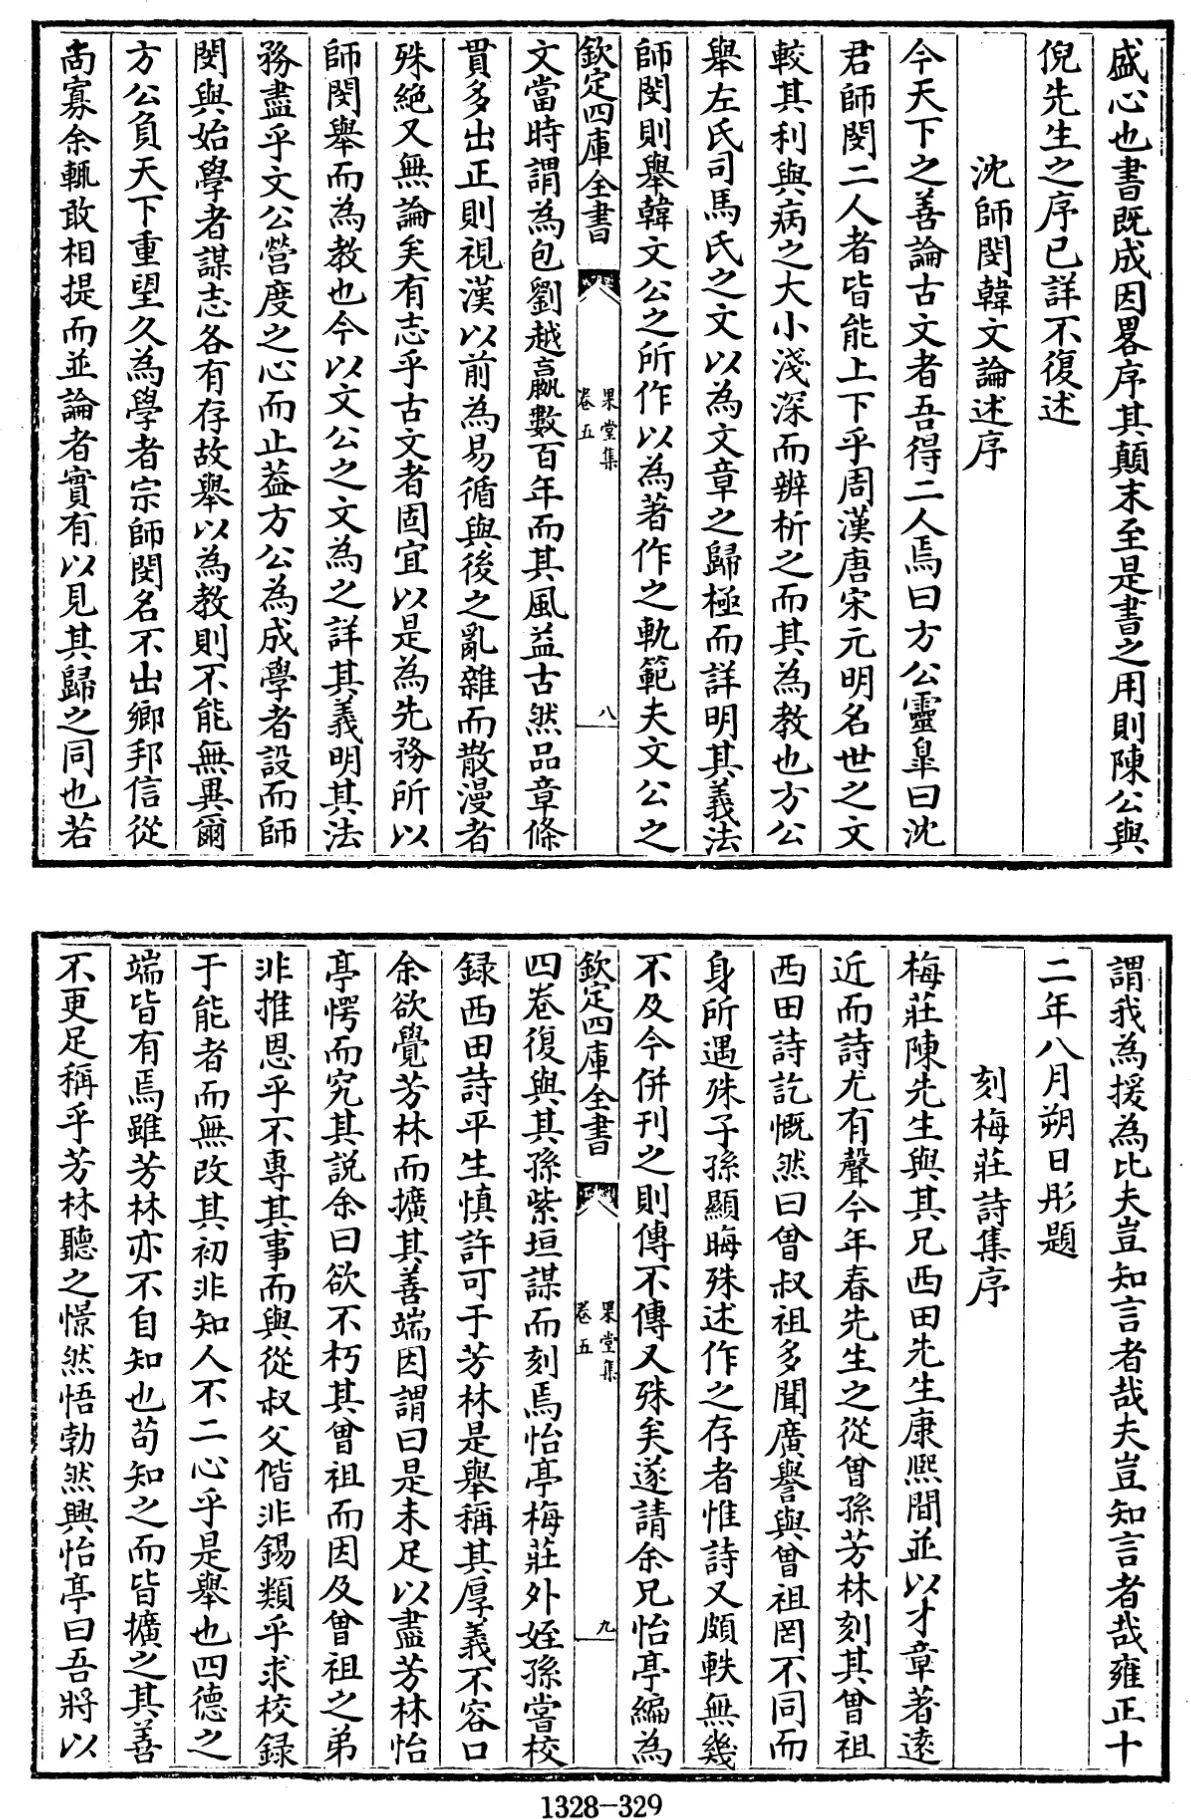 盛心也書既成因畧序其顛末至是書之用則陳公與
倪先生之序已詳不復述
沈師閔韓文論述序
今天下之善論古文者吾得二人焉曰方公靈臯曰沈
君師閔二人者皆能上下乎周漢唐宋元明名世之文
較其利與病之大小淺深而辨析之而其為教也方公
舉左氏司馬氏之文以為文章之歸極而詳明其義法
師閔則舉韓文公之所作以為著作之軌範夫文公之
欽定四庫全書
果堂集
卷五
八
文當時謂為包劉越嬴數百年而其風益古然品章條
貫多出正則視漢以前為易循與後之亂雜而散漫者
殊絕又無論矣有志乎古文者固宜以是為先務所以
師閔舉而為教也今以文公之文為之詳其義明其法
務盡乎文公營度之心而止葢方公為成學者設而師
閔與始學者謀志各有存故舉以為教則不能無異爾
方公負天下重望久為學者宗師閔名不出鄉邦信從
尚寡余輒敢相提而並論者實有以見其歸之同也若
謂我為援為比夫豈知言者哉夫豈知言者哉雍正十
二年八月朔日彤題
刻梅莊詩集序
梅莊陳先生與其兄西田先生康熙間並以才章著遠
近而詩尤有聲今年春先生之從曾孫芳林刻其曾祖
西田詩訖慨然曰曾叔祖多聞廣譽與曾祖罔不同而
身所遇殊子孫顯晦殊述作之存者惟詩又頗軼無幾
不及今併刊之則傳不傳又殊矣遂請余兄怡亭編為
欽定四庫全書
果堂集
卷五
九
四卷復與其孫紫垣謀而刻焉怡亭梅莊外姪孫當校
録西田詩平生慎許可于芳林是舉稱其厚義不容口
余欲覺芳林而擴其善端因謂曰是未足以盡芳林怡
亭愕而究其說余曰欲不朽其曾祖而因及曾祖之弟
非推恩乎不專其事而與從叔父偕非錫類乎求校録
于能者而無改其初非知人不二心乎是舉也四德之
端皆有焉雖芳林亦不自知也苟知之而皆擴之其善
不更足稱乎芳林聽之憬然悟勃然興怡亭曰吾將以
1328-329